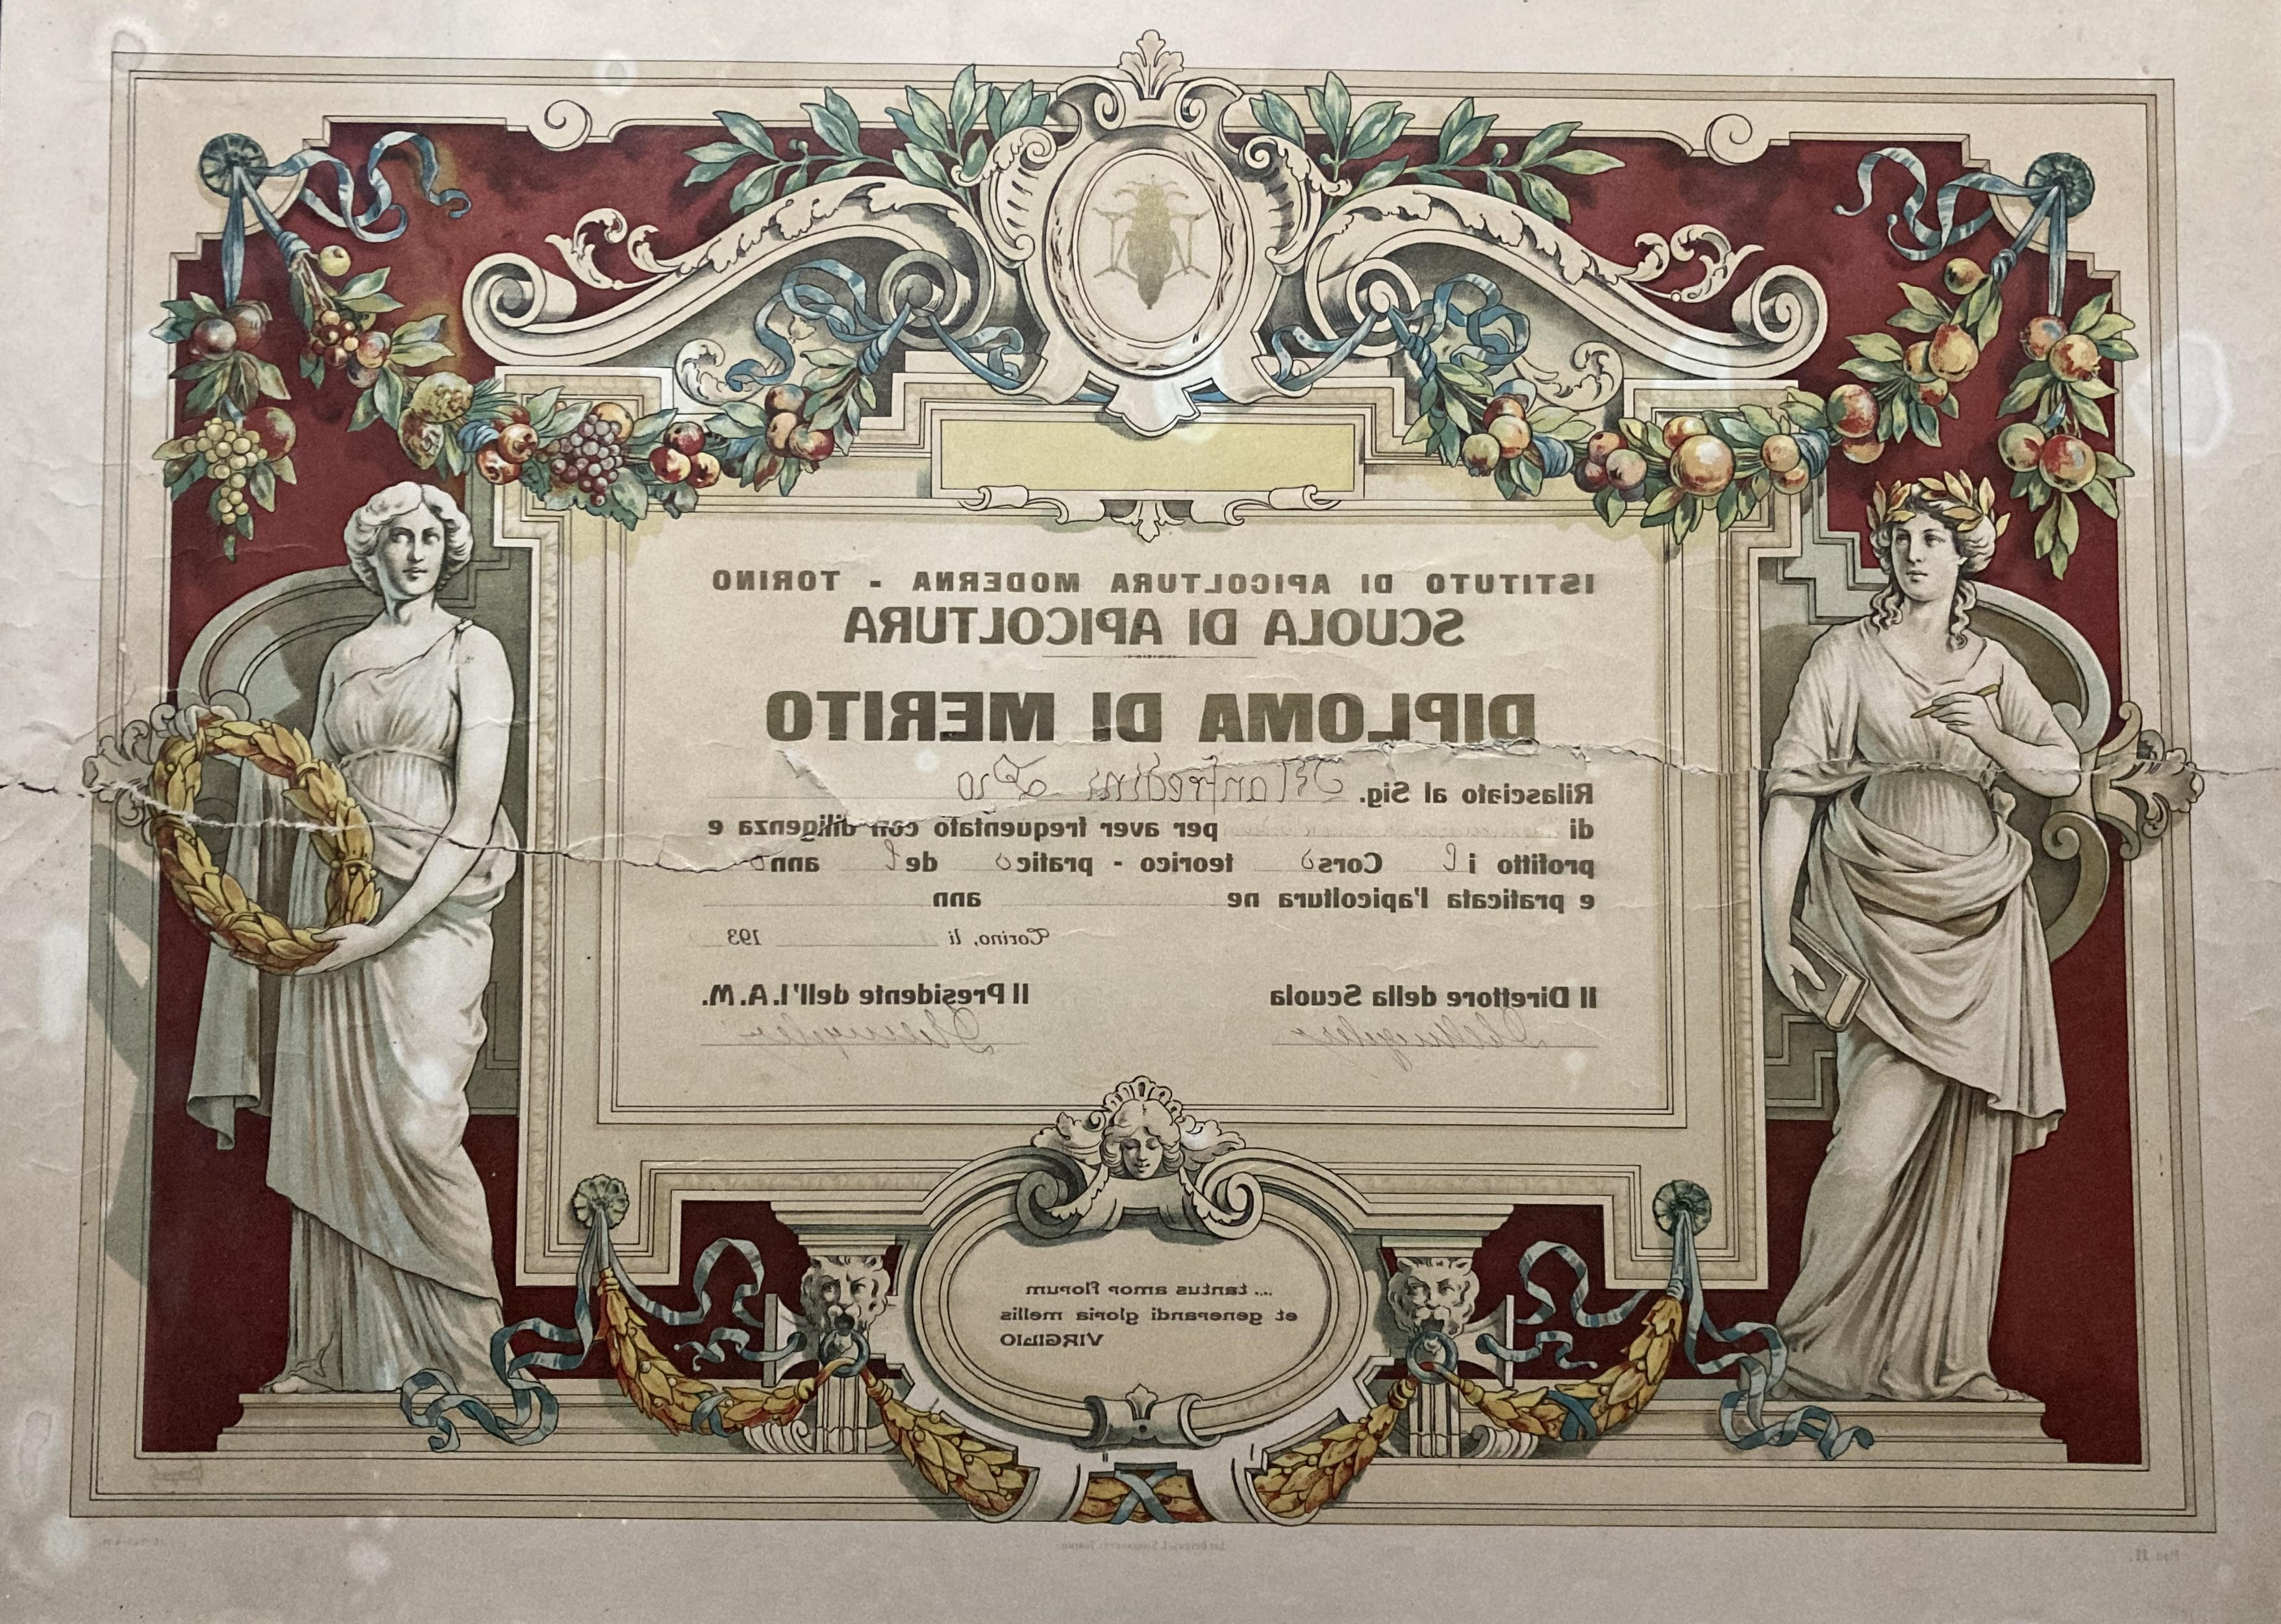 ISTITUTO DI APICOLTURA MODERNA - TORINO
SCUOLA DI APICOLTURA
DIPLOMA DI MERITO
Rilasciato al Sig. Manfredini Pio
di per aver frequentato con diligenza e
profitto il Corso teorico - pratico del anno
e praticata l'apicoltura ne ann
Torino, li 193
Il Direttore della Scuola Il Presidente dell'I. A. M.
.... tantus amor florum
et generandi gloria mellis
VIRGILIO